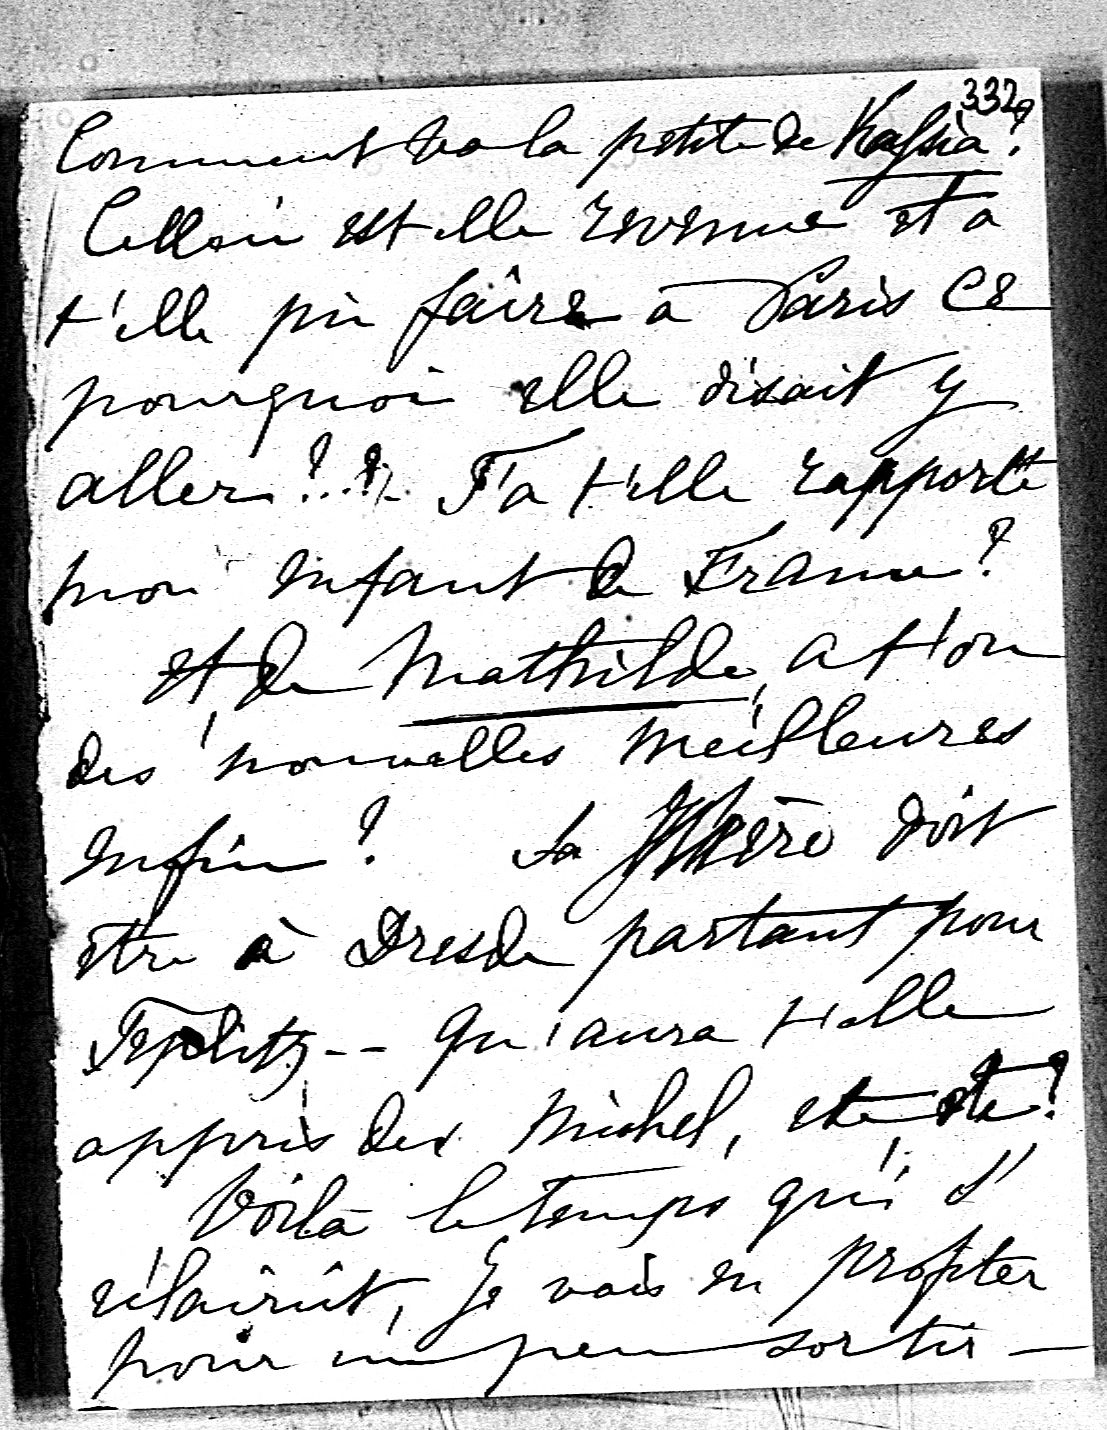 332
Comment va la petite de Kassia?
Celle ci est elle revenue et a
t'elle pû faire à Paris ce
pourquoi elle disait y
aller?..?.. T'a t'elle rapporté
mon enfant de France?
Et de Mathilde, a t'on
des nouvelles meilleures
enfin? Sa Mère doit
être à Dresde partant pour
Teplitz -- Qu'aura t'elle
appris des Michel, etc etc?
Voilà le temps qui s'
éclaircit, je vais en profiter
pour un peu sortir —